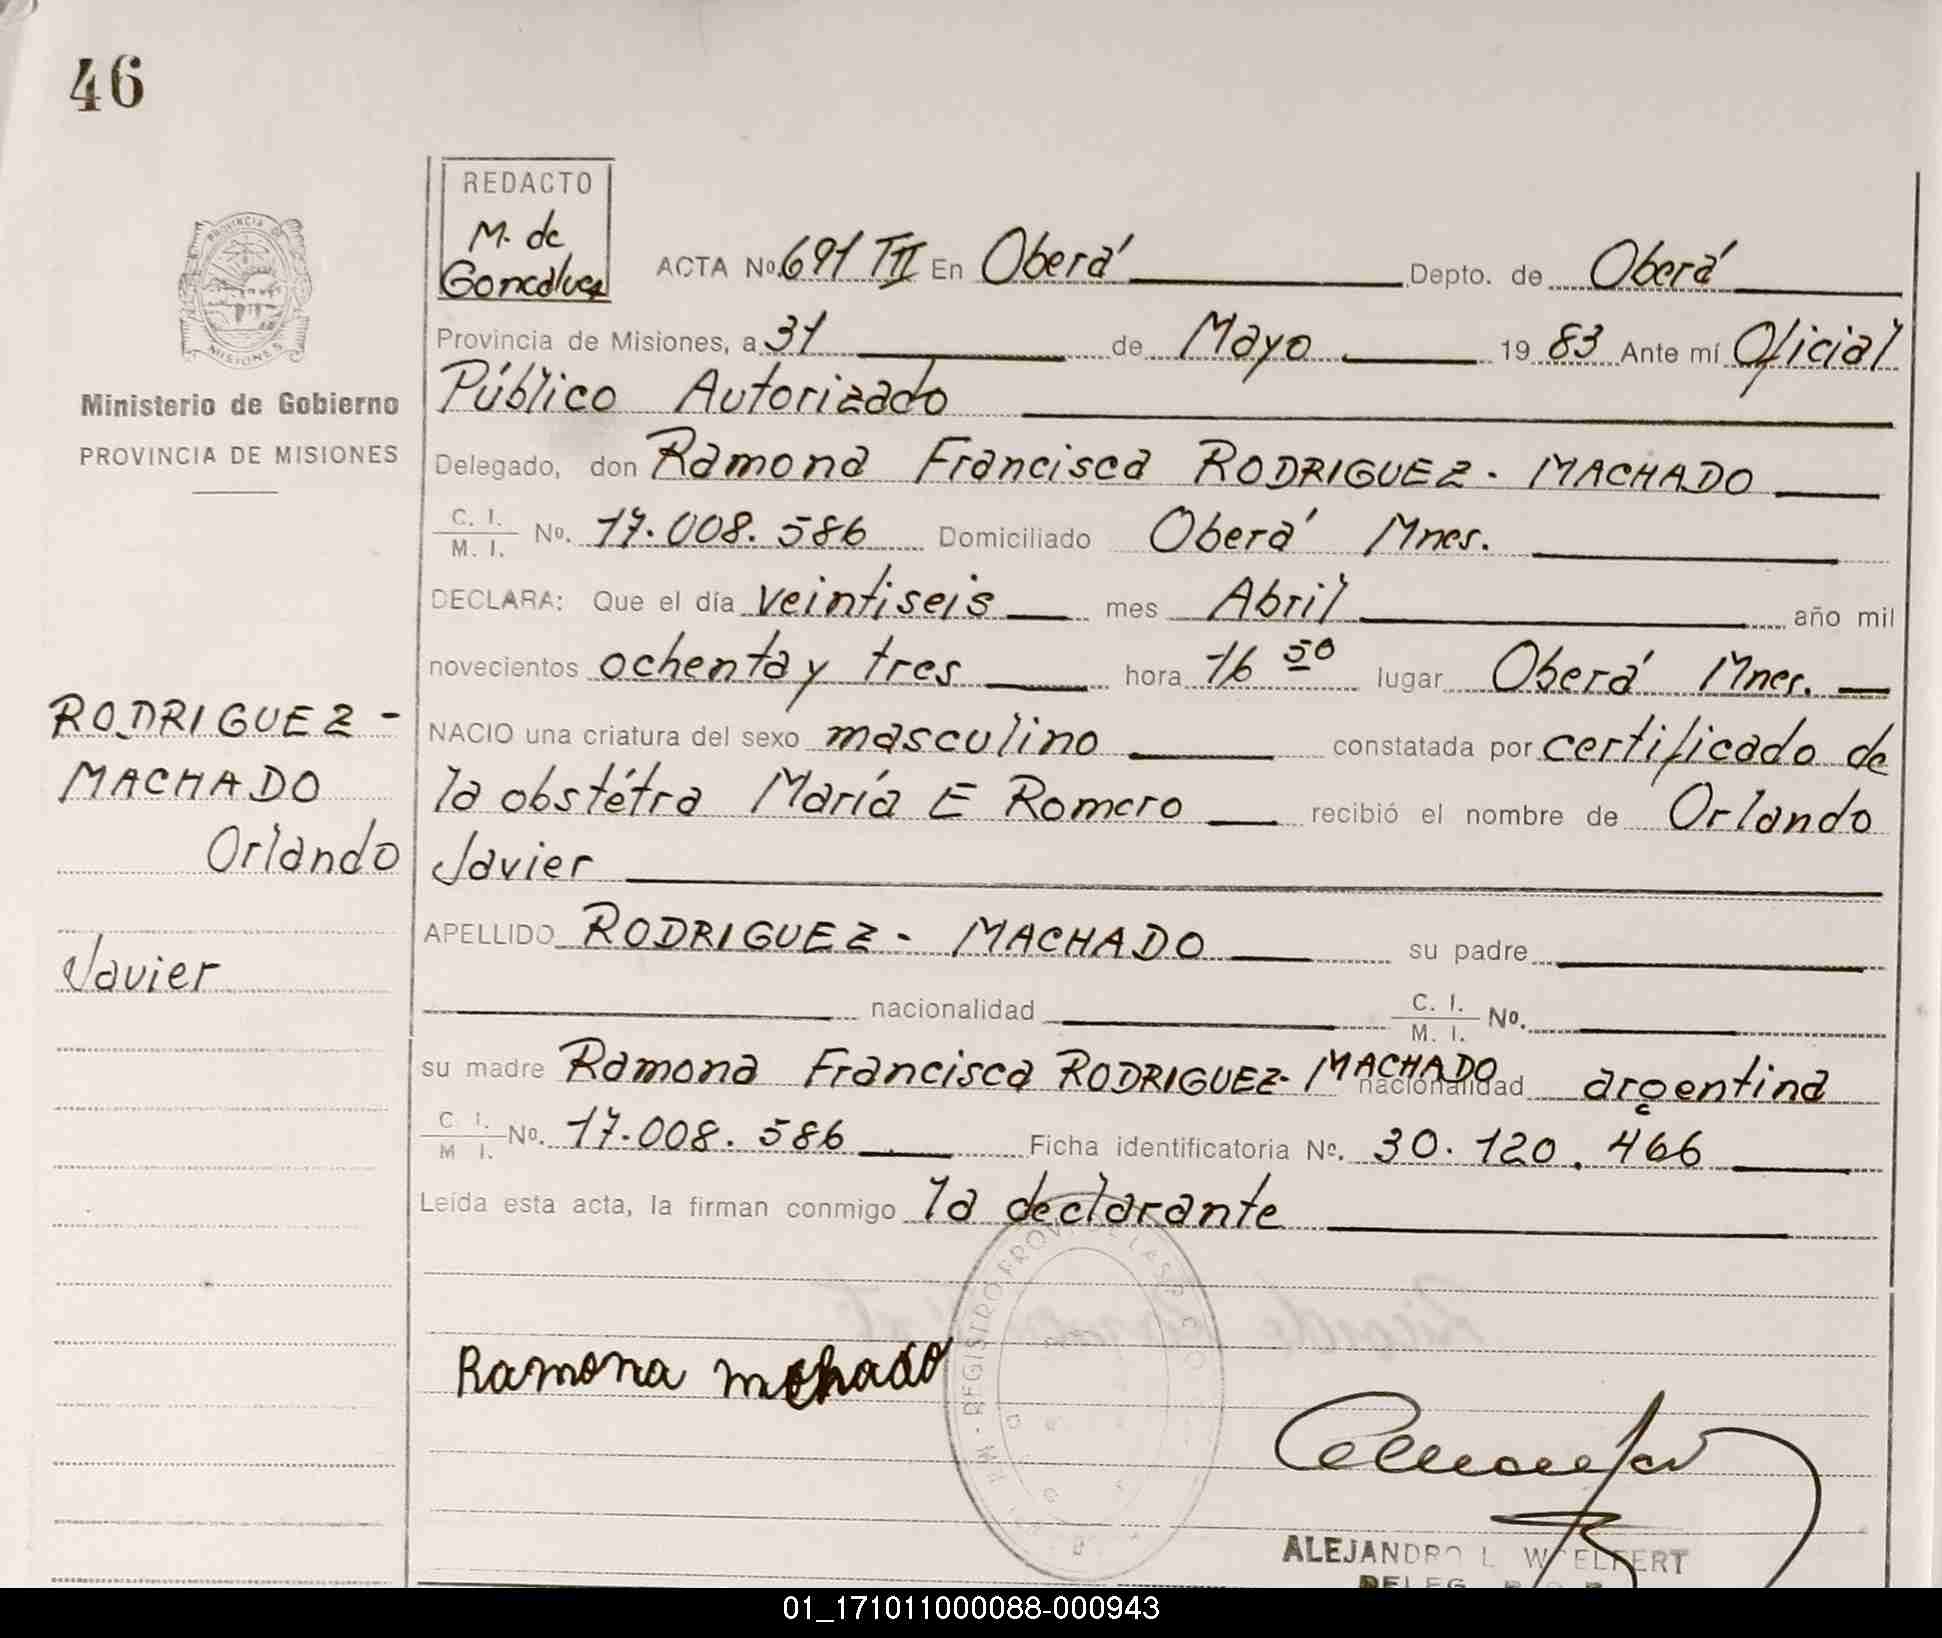 46
REDACTO
M. de
Goncalves
PROVINCIA DE
MISIONES
ACTA No. 691 TII En Oberá Depto. de Oberá
Provincia de Misiones, a 31 de Mayo 19 83 Ante mí Oficial
Ministerio de Gobierno
Público Autorizado
PROVINCIA DE MISIONES
Delegado, don Ramona Francisca RODRIGUEZ - MACHADO
C. I.
M. I. No. 17.008.586 Domiciliado Oberá Mnes.
DECLARA: Que el día veintiseis mes Abril año mil
novecientos ochenta y tres hora 16 50 lugar Oberá Mnes.
RODRIGUEZ -
NACIO una criatura del sexo masculino constatada por certificado de
MACHADO
la obstétra María E Romero recibió el nombre de Orlando
Orlando
Javier
APELLIDO RODRIGUEZ - MACHADO su padre
Javier
nacionalidad C. I.
M. I. No.
su madre Ramona Francisca RODRIGUEZ- MACHADO nacionalidad argentina
C. I.
M. I. No. 17.008.586 Ficha identificatoria No. 30.120.466
Leída esta acta, la firman conmigo la declarante
REGISTRO PROV. DE LAS P
Ramona mchado
ALEJANDRO L WOELFERT
DELEG
01_171011000088-000943